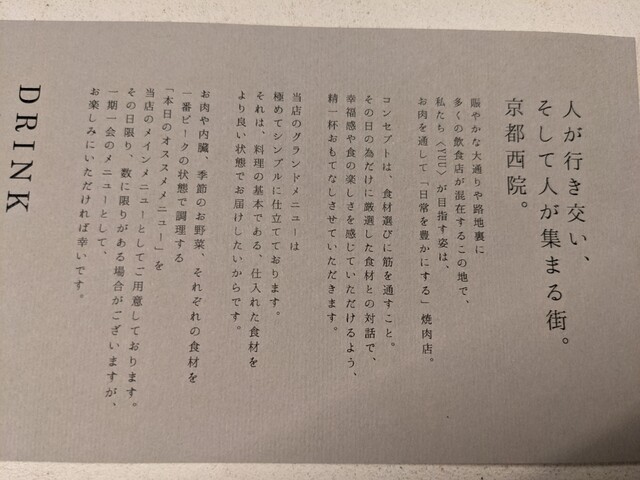 人が行き交い、
そして人が集まる街。
京都西院。
賑やかな大通りや路地裏に
多くの飲食店が混在するこの地で、
私たち〈YUU〉が目指す姿は、
お肉を通して「日常を豊かにする」焼肉店。
コンセプトは、食材選びに筋を通すこと。
その日の為だけに厳選した食材との対話で、
幸福感や食の楽しさを感じていただけるよう、
精一杯おもてなしさせていただきます。
当店のグランドメニューは
極めてシンプルに仕立てております。
それは、料理の基本である、仕入れた食材を
より良い状態でお届けしたいからです。
お肉や内臓、季節のお野菜、それぞれの食材を
一番ピークの状態で調理する
「本日のオススメメニュー」を
当店のメインメニューとしてご用意しております。
その日限り、数に限りがある場合がございますが、
一期一会のメニューとして、
お楽しみにいただければ幸いです。
DRINK